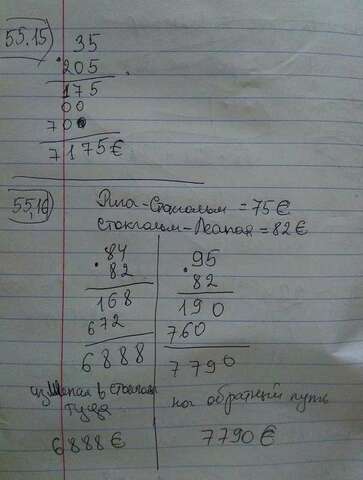 55.15) 35
205
175
00
700
7175€
55,16) Рига-Стокгольм = 75€
Стокгольм- = 82€
84 95
82 82
168 190
672 760
6888 7790
из в туда на обратный путь
6888€ 7790€